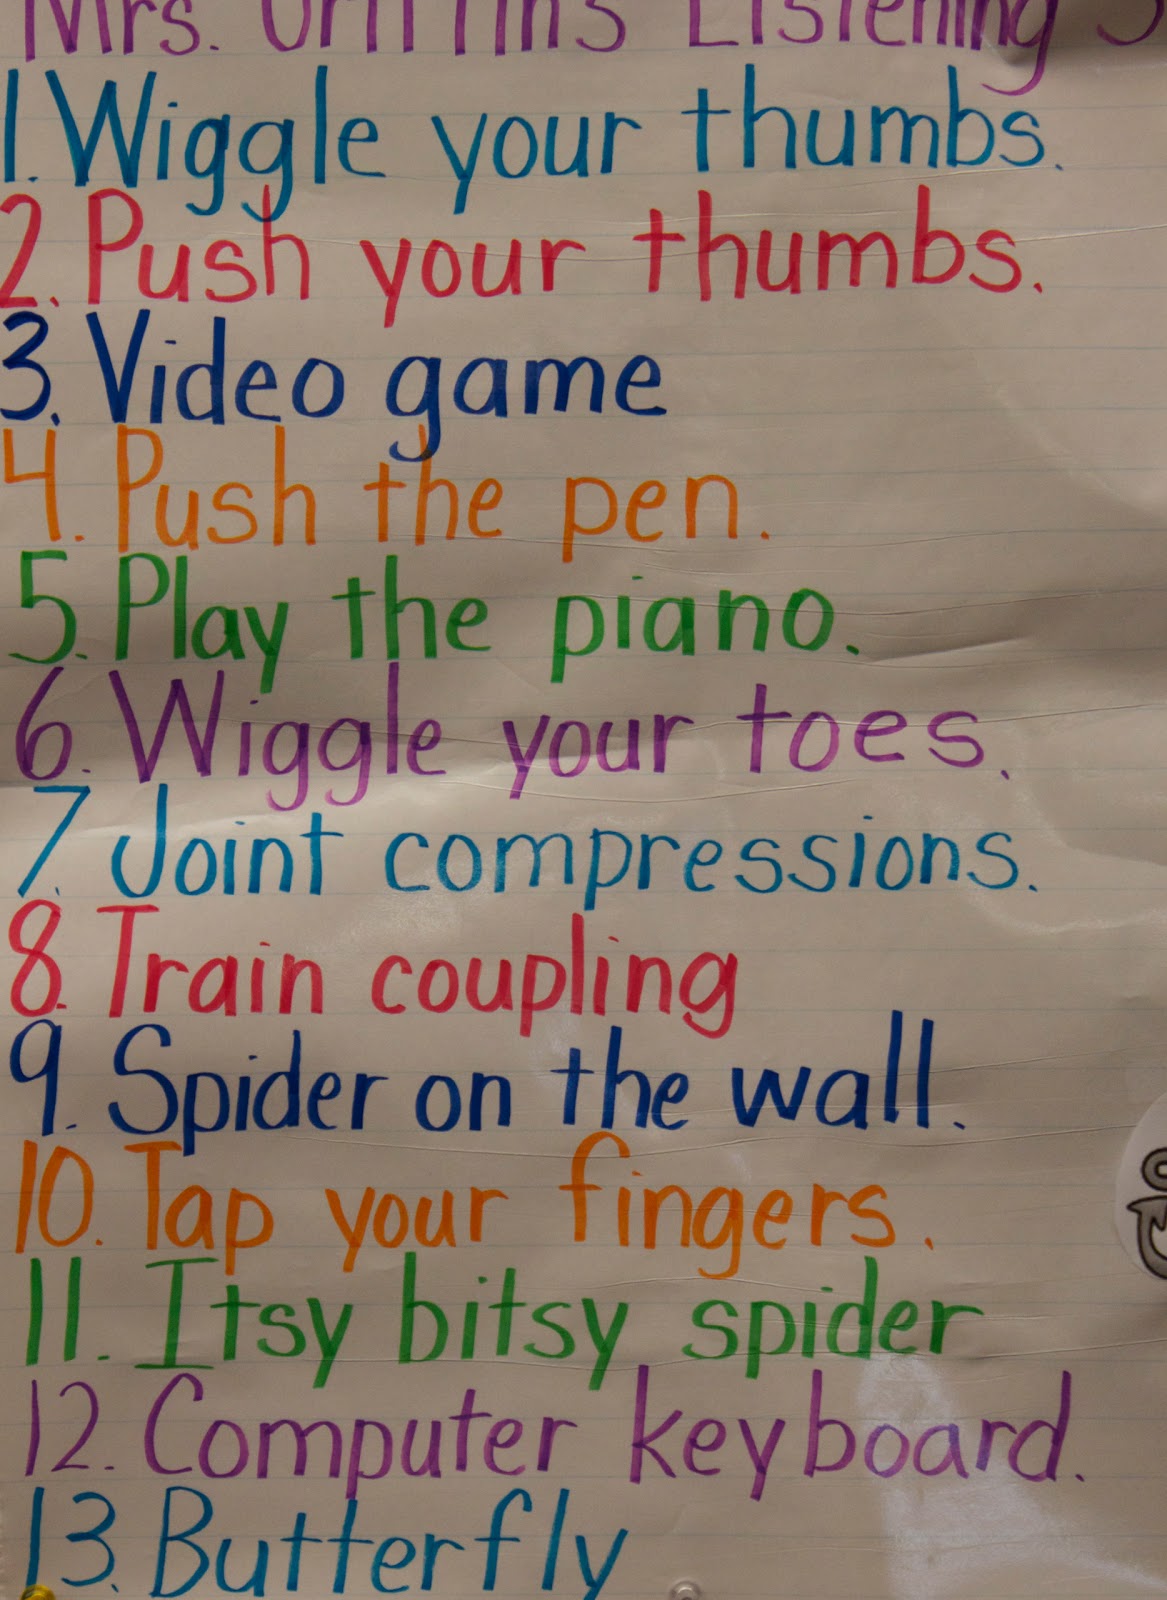 Mrs. Griffin's Listening
1. Wiggle your thumbs.
2. Push your thumbs.
3. Video game
4. Push the pen.
5. Play the piano.
6. Wiggle your toes.
7. Joint compressions.
8. Train coupling
9. Spider on the wall.
10. Tap your fingers.
11. Itsy bitsy spider
12. Computer keyboard.
13. Butterfly